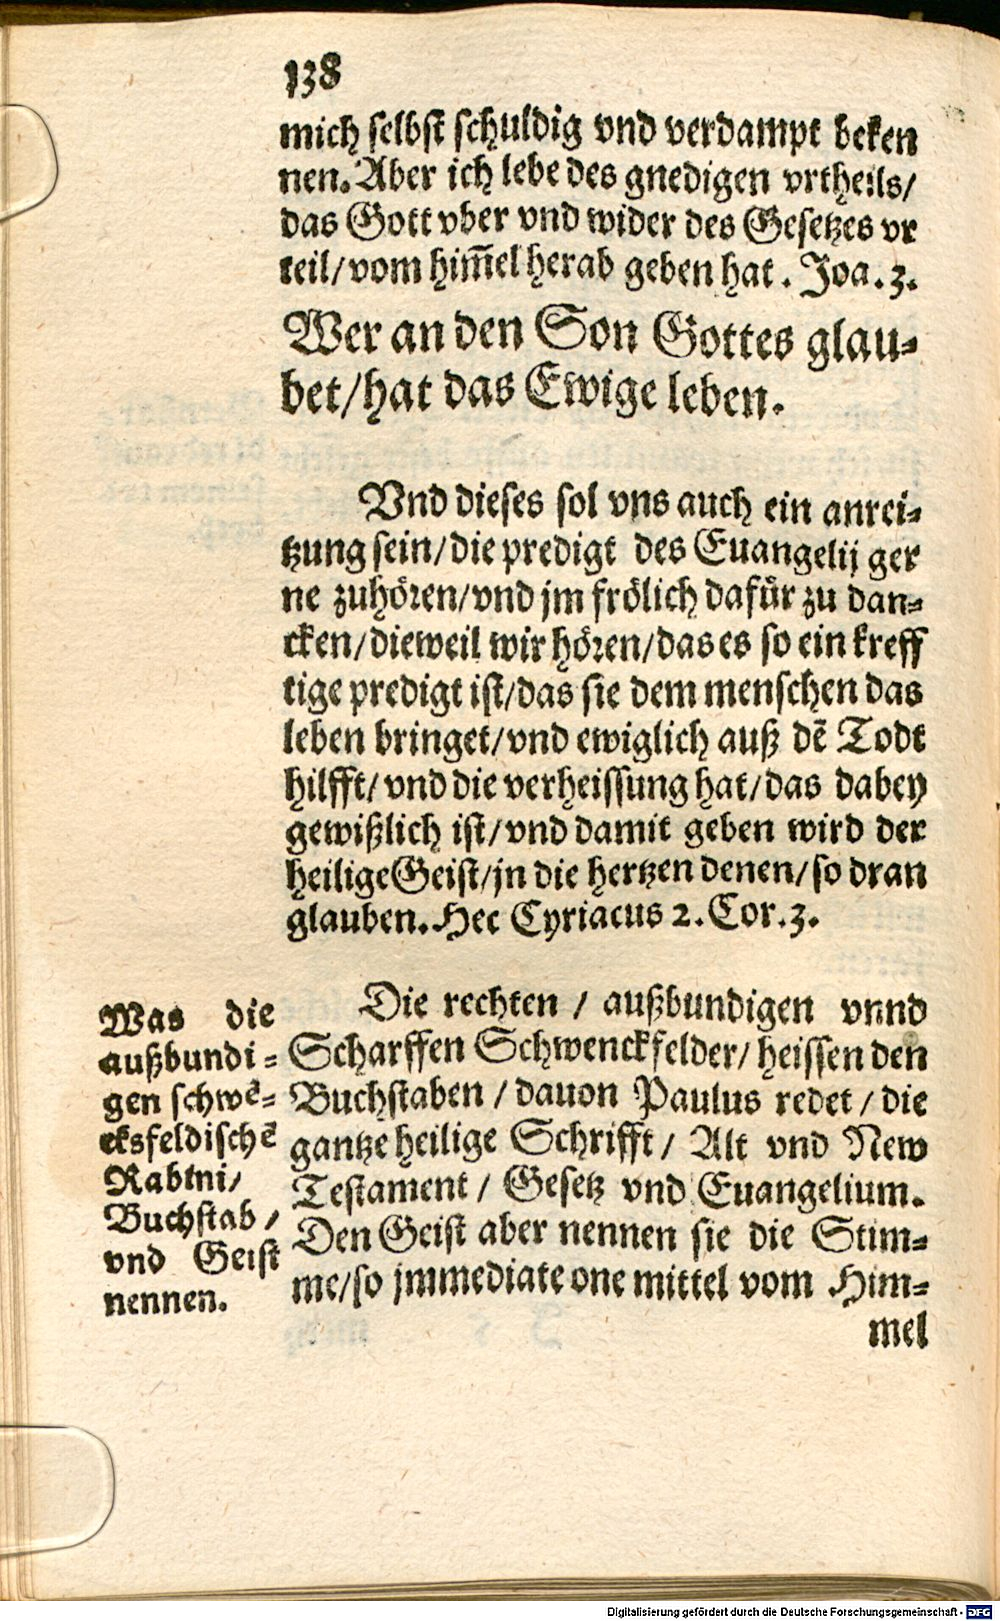 138
mich selbst schuldig vnd verdampt beken
nen. Aber ich lebe des gnedigen vrtheils/
das Gott vber vnd wider des Gesetzes vr
teil/ vom him̄el herab geben hat. Joa. 3.
Wer an den Son Gottes glau-
bet/ hat das Ewige leben.
Vnd dieses sol vns auch ein anrei-
tzung sein/ die predigt des Euangelij ger
ne zuhören/ vnd jm frölich dafür zu dan-
cken/ dieweil wir hören/ das es so ein kreff
tige predigt ist/ das sie dem menschen das
leben bringet/ vnd ewiglich auß dē Todt
hilfft/ vnd die verheissung hat/ das dabey
gewißlich ist/ vnd damit geben wird der
heilige Geist/ jn die hertzen denen/ so dran
glauben. Hec Cyriacus 2. Cor. 3.
Was die
außbundi-
gen schwē-
cksfeldischē
Rabini/
Buchstab/
vnd Geist
nennen.
Die rechten / außbundigen vnnd
Scharffen Schwenckfelder/ heissen den
Buchstaben / dauon Paulus redet / die
gantze heilige Schrifft/ Alt vnd New
Testament / Gesetz vnd Euangelium.
Den Geist aber nennen sie die Stim-
me/ so jmmediate one mittel vom Him-
mel
Digitalisierung gefördert durch die Deutsche Forschungsgemeinschaft - DFG